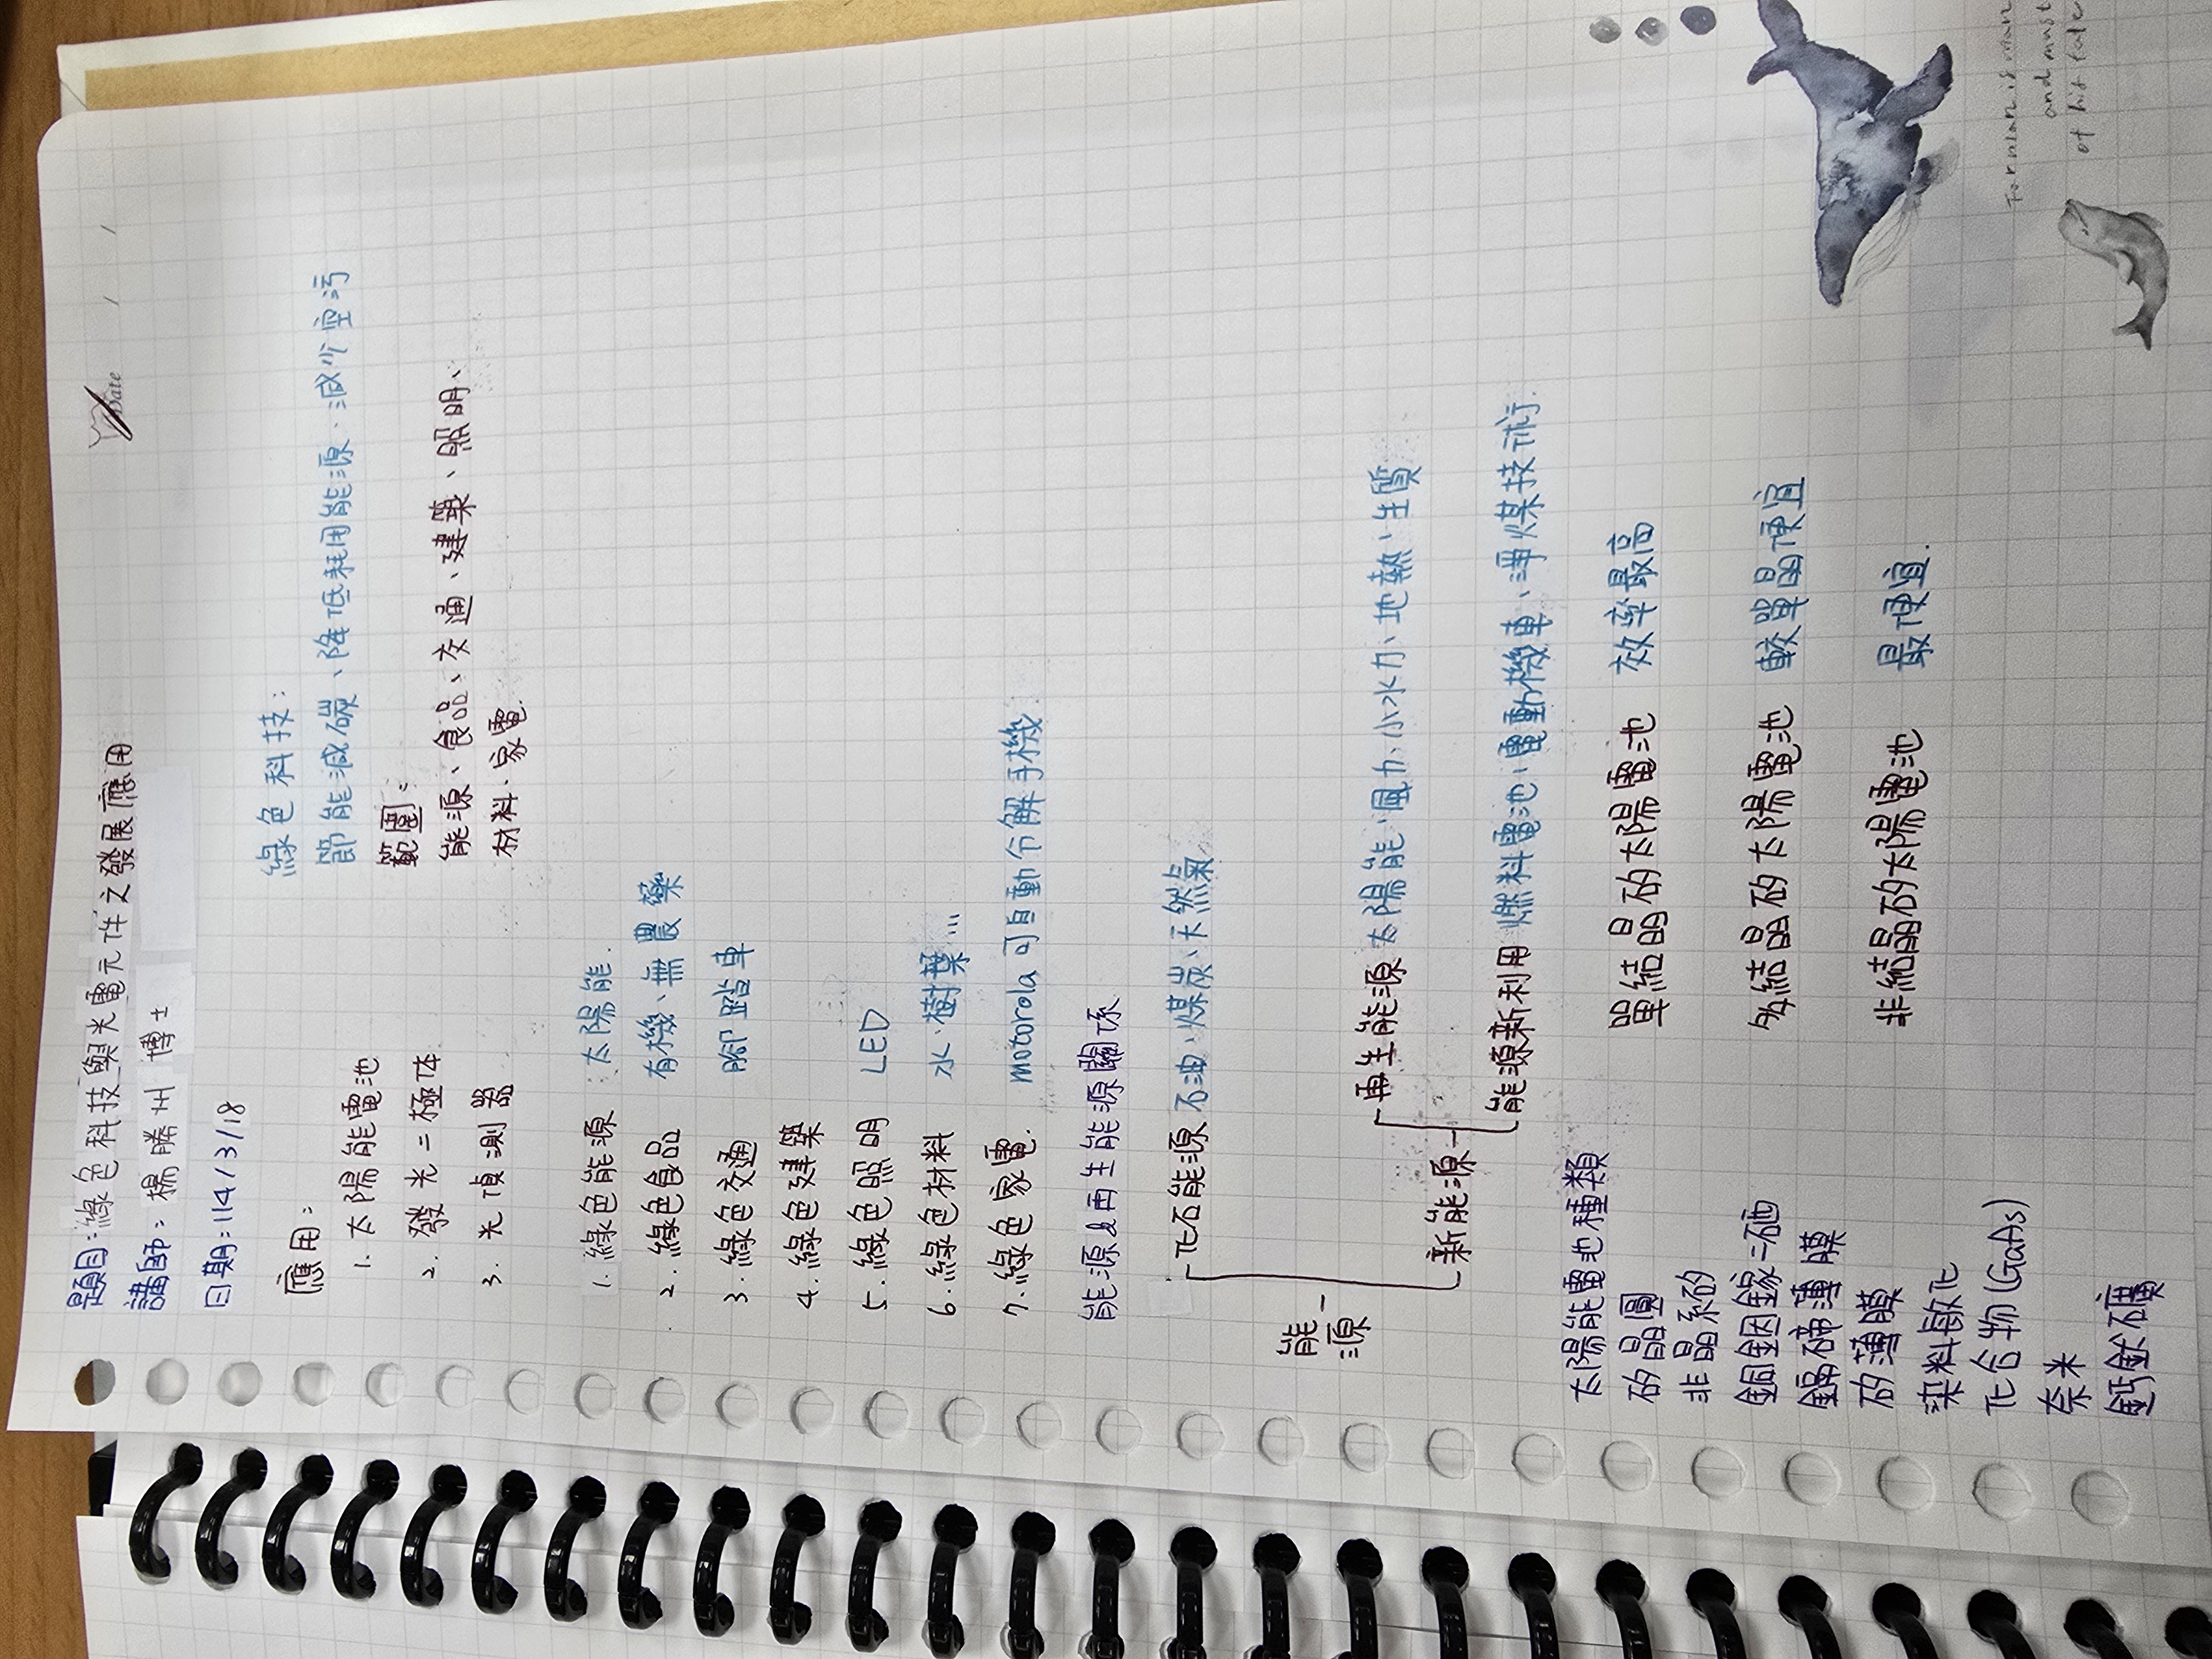 題目:綠色科技與光電元件之發展應用
Date / /
講師:楊勝州 博士
日期:114/3/18
應用:
1. 太陽能電池
2. 發光二極体
3. 光偵測器
綠色科技:
節能減碳、降低耗用能源、減少空污
範圍:
能源、食品、交通、建築、照明、
材料、家電.
1. 綠色能源 : 太陽能.
2. 綠色食品 有機、無農藥
3. 綠色交通 腳踏車
4. 綠色建築
5. 綠色照明 LED
6. 綠色材料 水、樹葉...
7. 綠色家電. motorola 可自動分解手機.
能源&再生能源關係
化石能源 石油、煤炭、天然氣
能源
再生能源 太陽能、風力、小水力、地熱、生質
新能源
能源新利用 燃料電池、電動機車、淨煤技術.
太陽能電池種類
矽晶圓
非晶系矽
銅銦鎵二硒
鎘碲薄膜
矽薄膜
染料敏化
化合物(GaAs)
奈米
鈣鈦礦
單結晶矽太陽電池 效率最高
多結晶矽太陽電池 較單晶便宜
非結晶矽太陽電池 最便宜.
For man is man
and must
of his fate